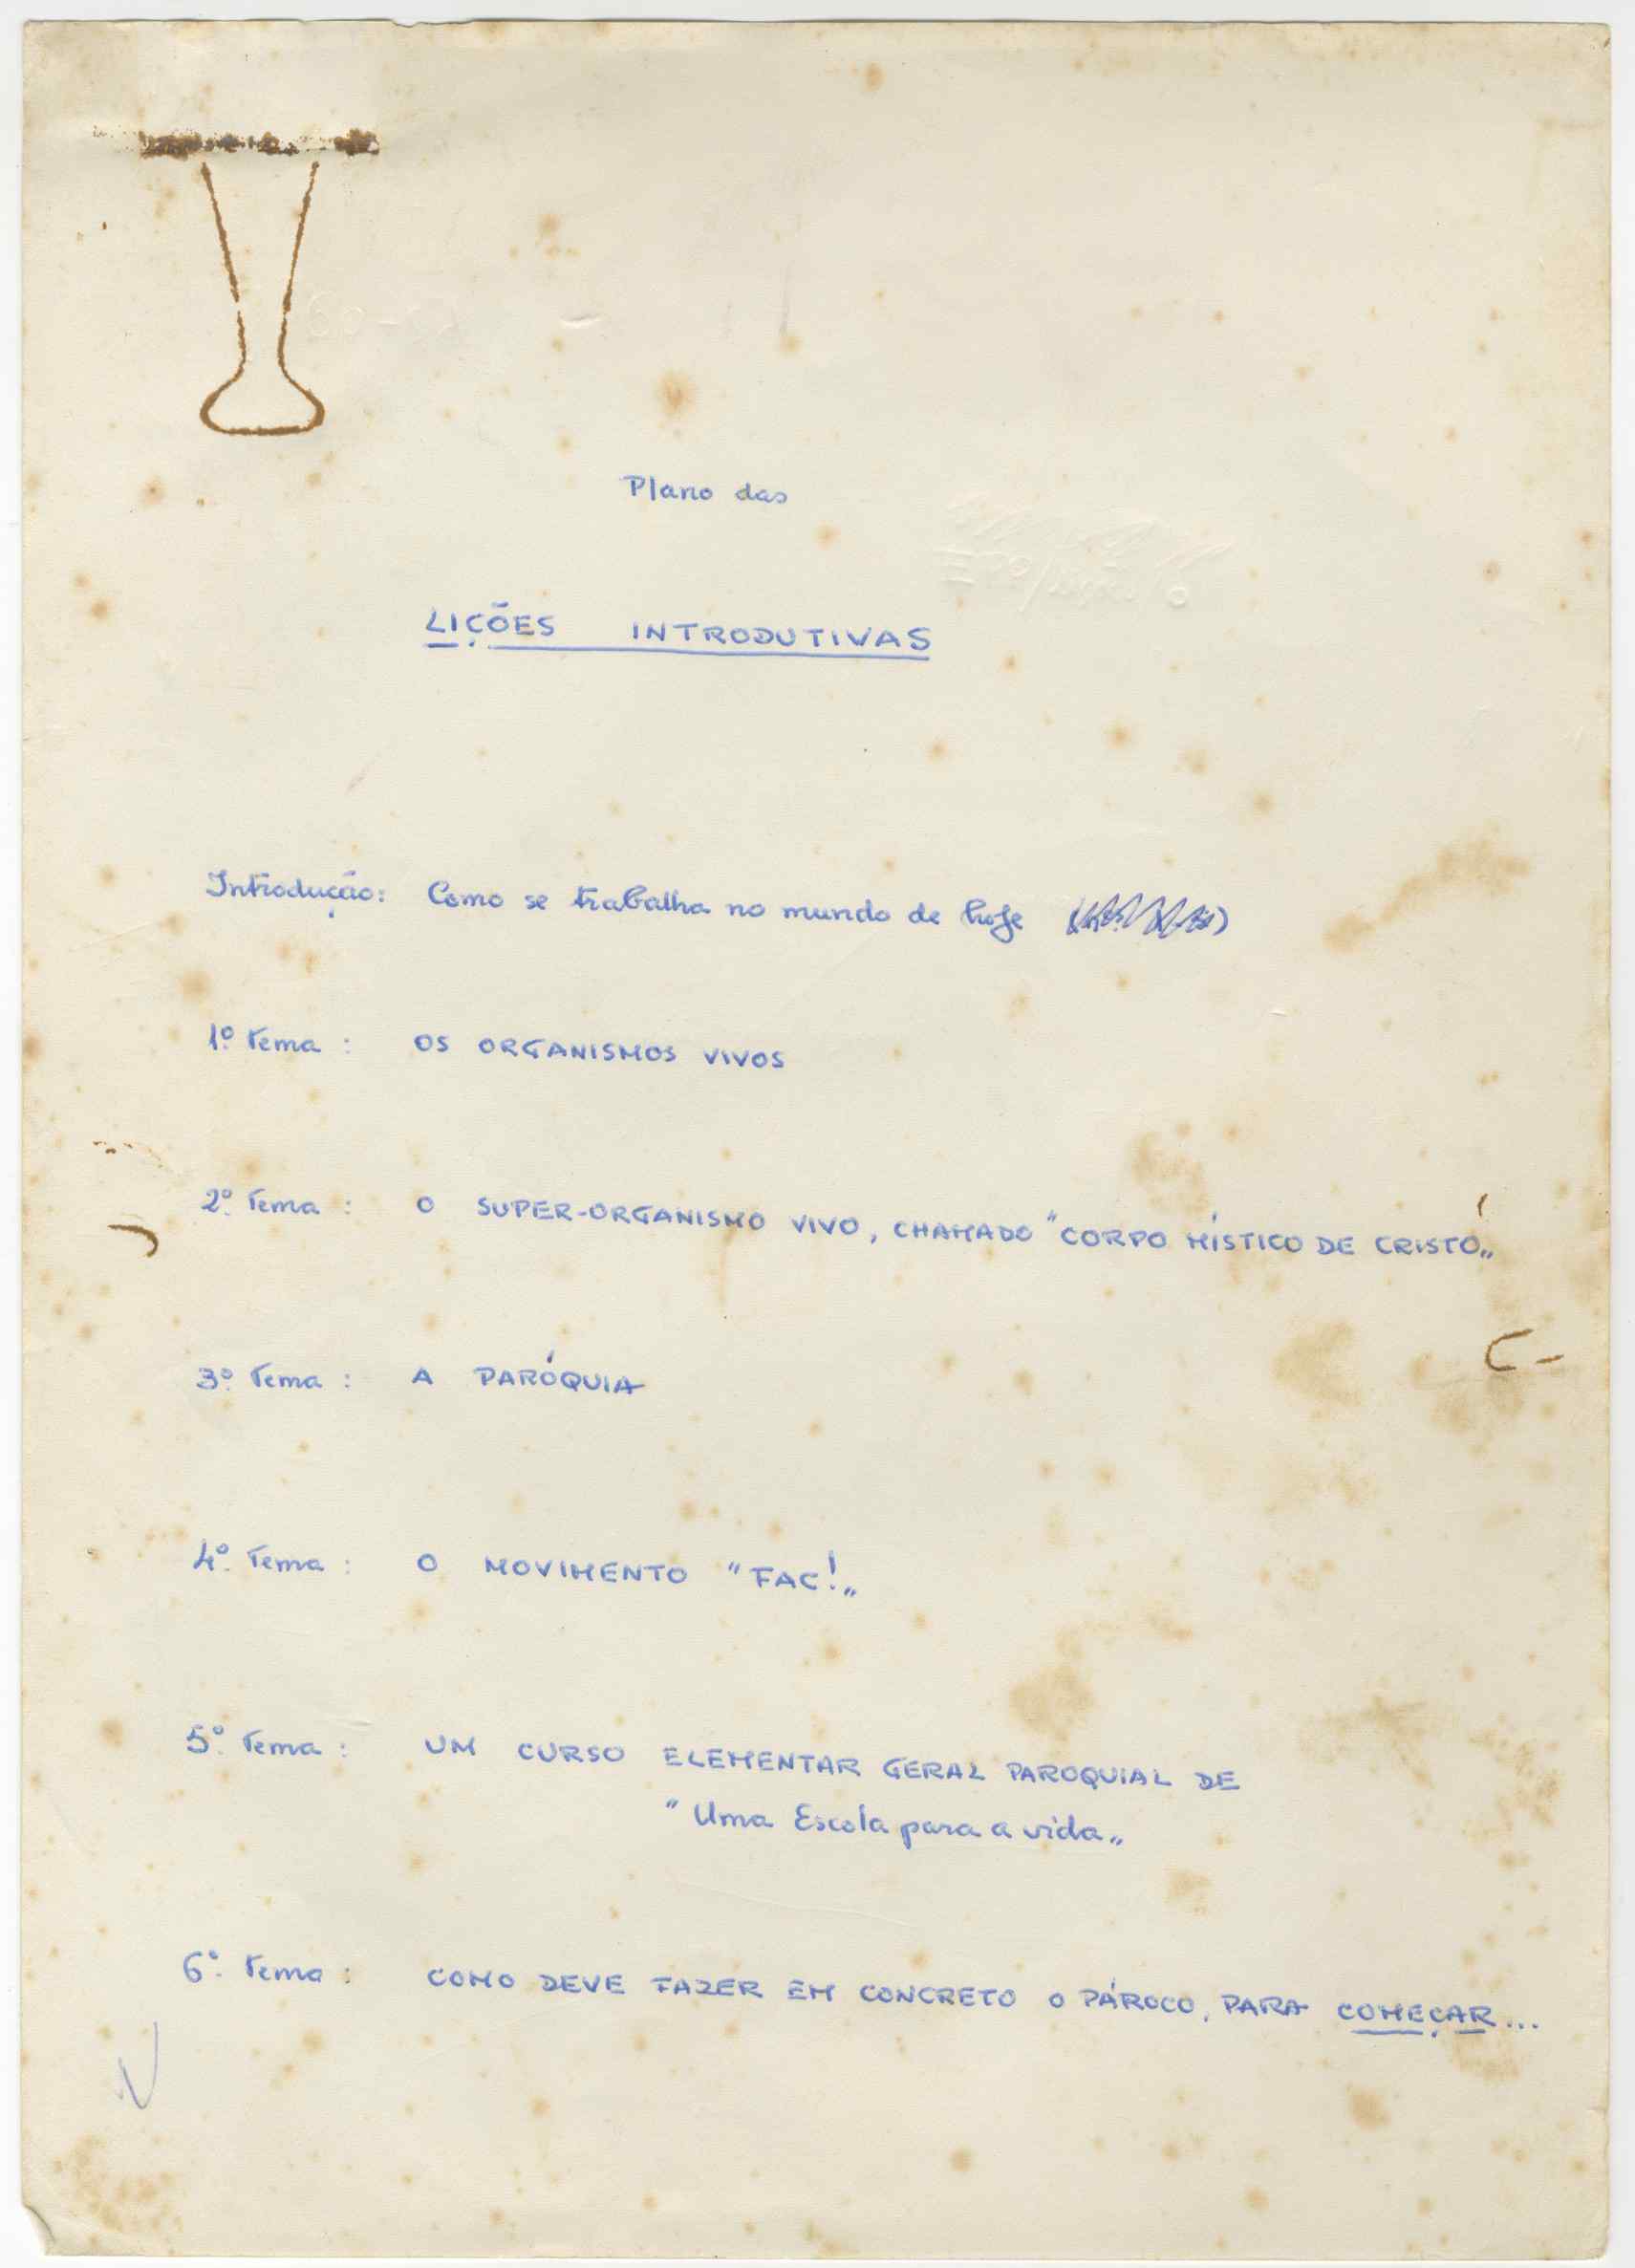 Plano das
LIÇÕES INTRODUTIVAS
Introdução: Como se trabalha no mundo de hoje
1º tema : OS ORGANISMOS VIVOS
2º tema : O SUPER-ORGANISMO VIVO, CHAMADO "CORPO MÍSTICO DE CRISTO„
3º tema : A PARÓQUIA
4º tema : O MOVIMENTO "FAC!„
5º tema : UM CURSO ELEMENTAR GERAL PAROQUIAL DE
"Uma Escola para a vida„
6º tema : COMO DEVE FAZER EM CONCRETO O PÁROCO, PARA COMEÇAR...